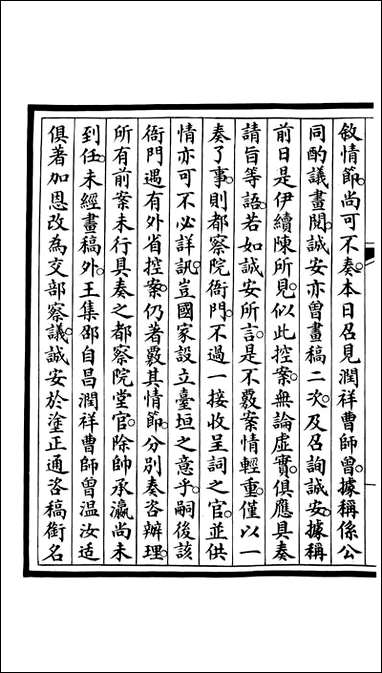 敘情節尚可不奏本日召見潤祥曹師曾據稱係公
同酌議畫閱誠安亦曾畫稿二次及召詢誠安據稱
前日是伊續陳所見似此控案無論虛實俱應具奏
請旨等語若如誠安所言是不覈案情輕重僅以一
奏了事則都察院衙門不過一接收呈詞之官並供
情亦可不必詳訊豈國家設立臺垣之意乎嗣後該
衙門遇有外省控案仍著覈其情節分別奏咨辦理
所有前案未行具奏之都察院堂官除師承瀛尚未
到任未經畫稿外王集邵自昌潤祥曹師曾温汝适
俱著加恩改為交部察議誠安於塗正通咨稿銜名